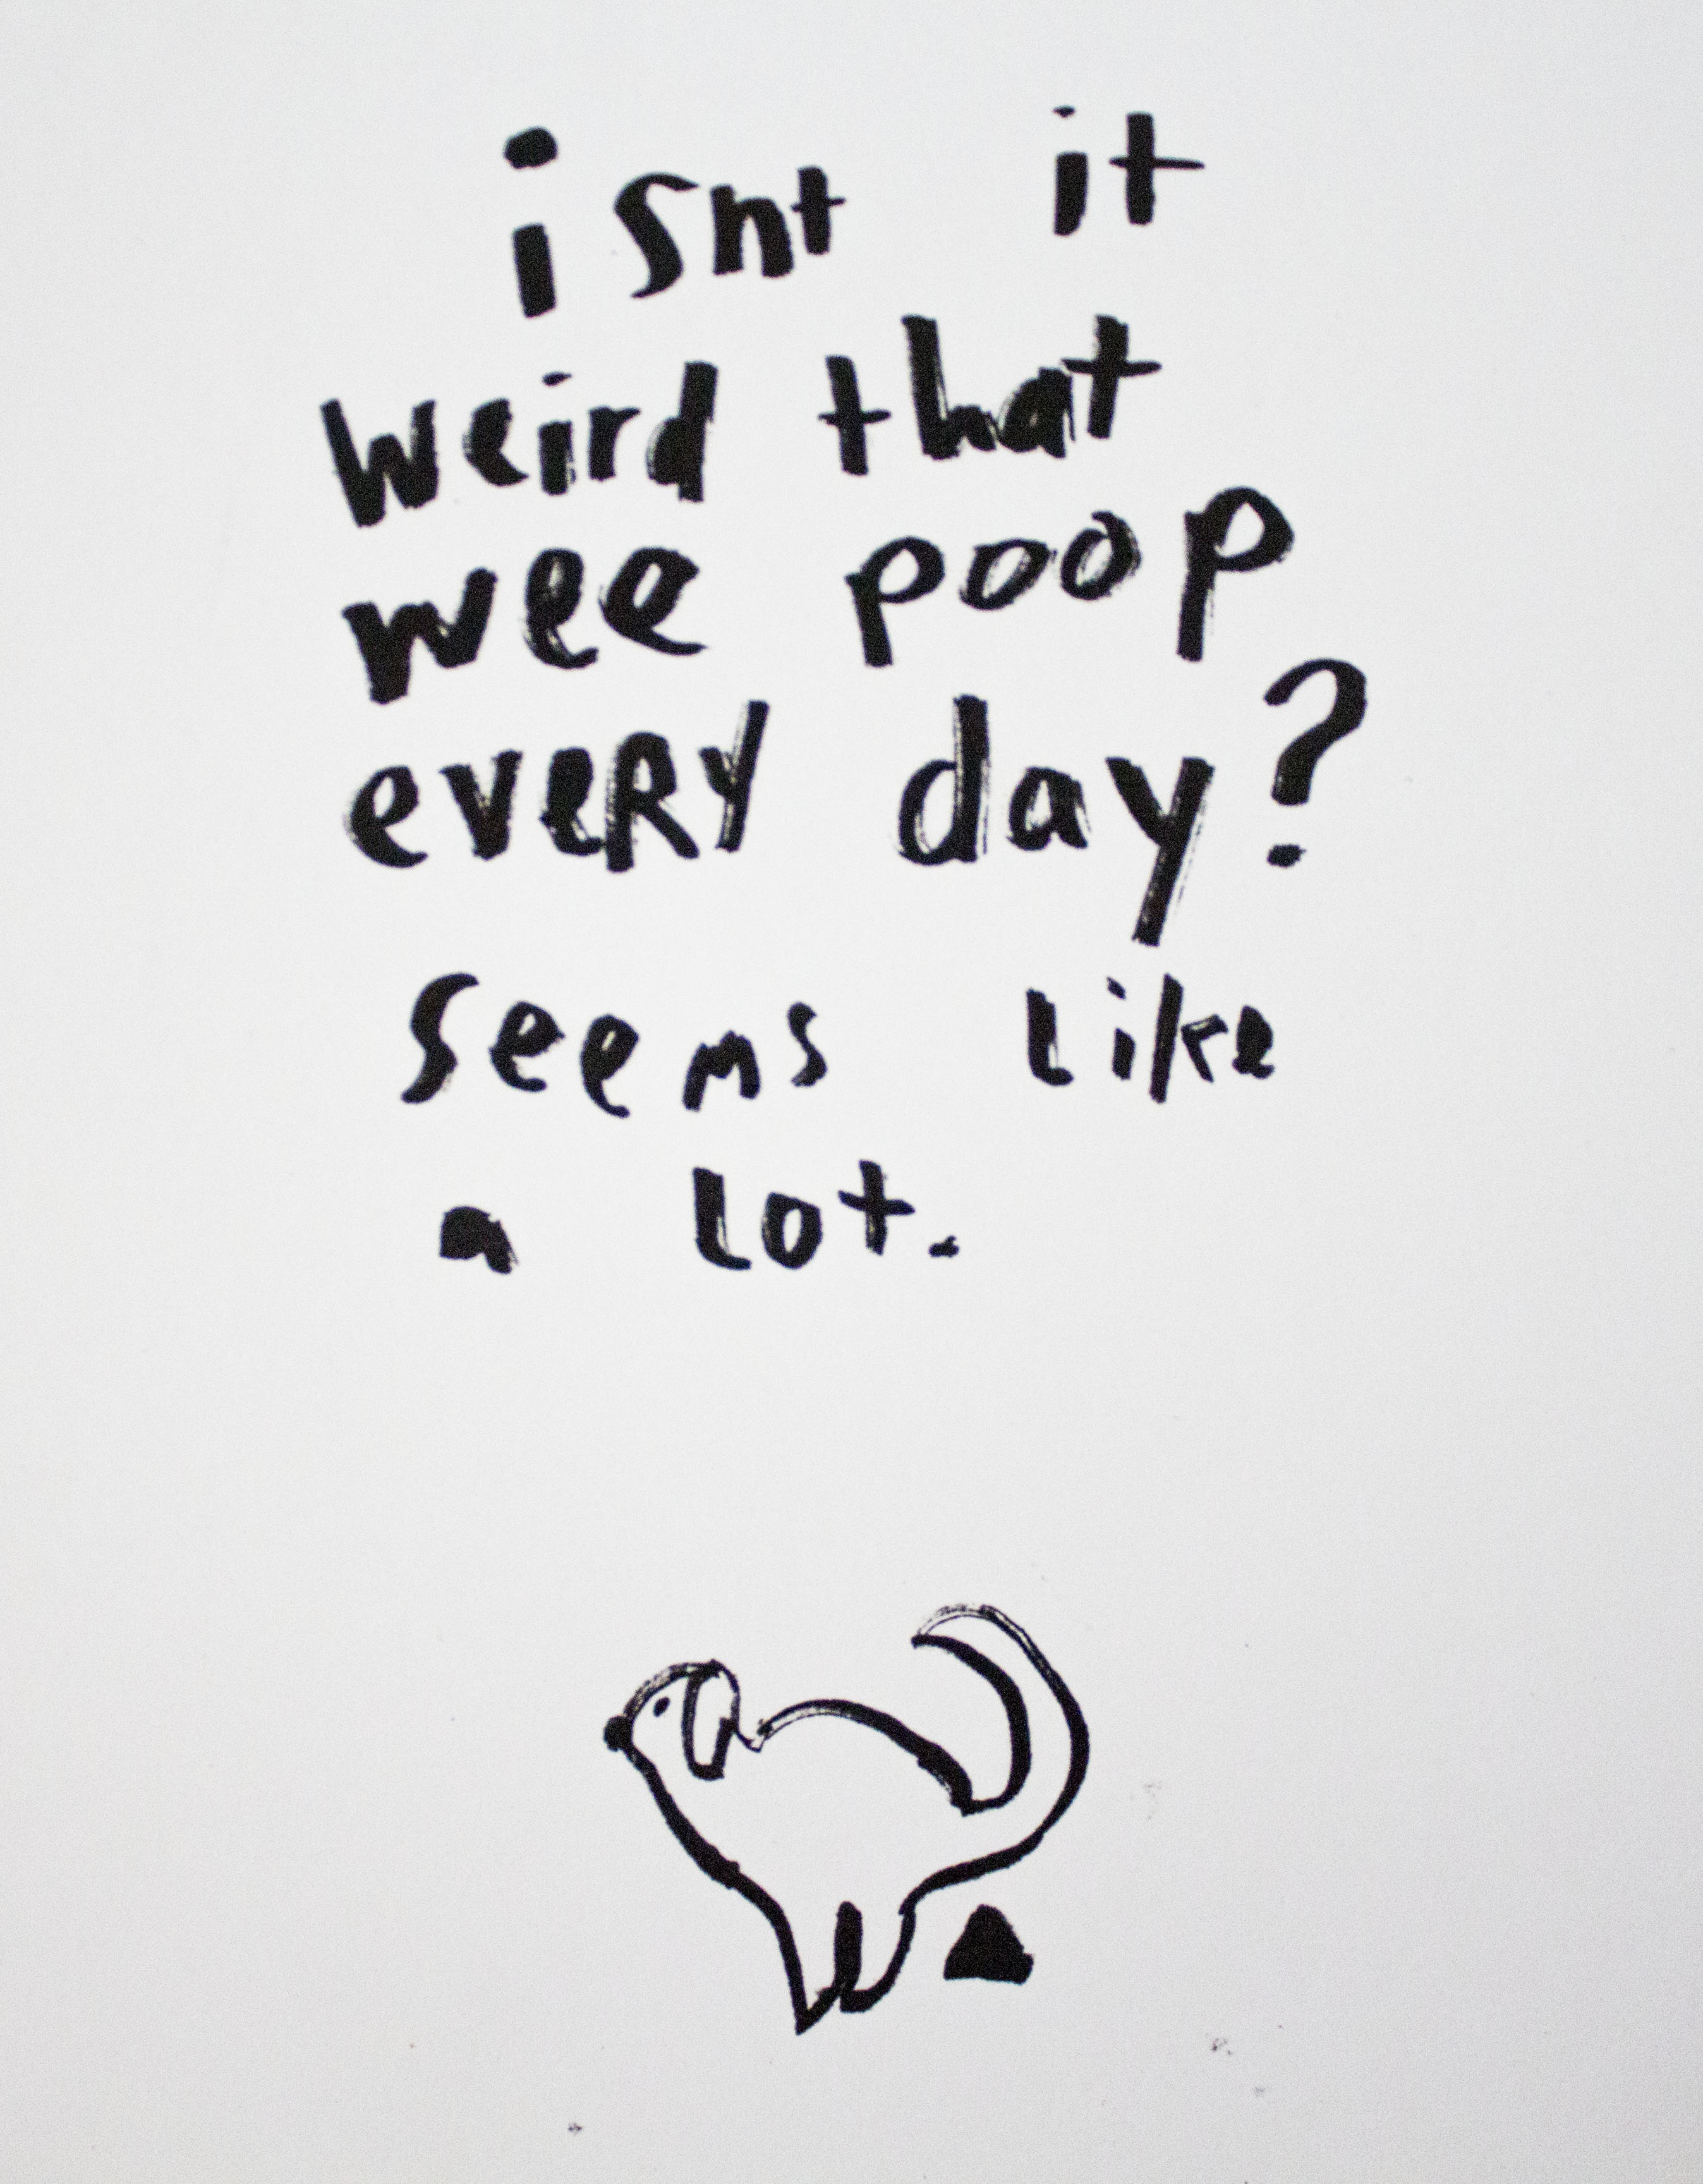 isnt it
weird that
wee poop
eveRy day?
seems like
a lot.